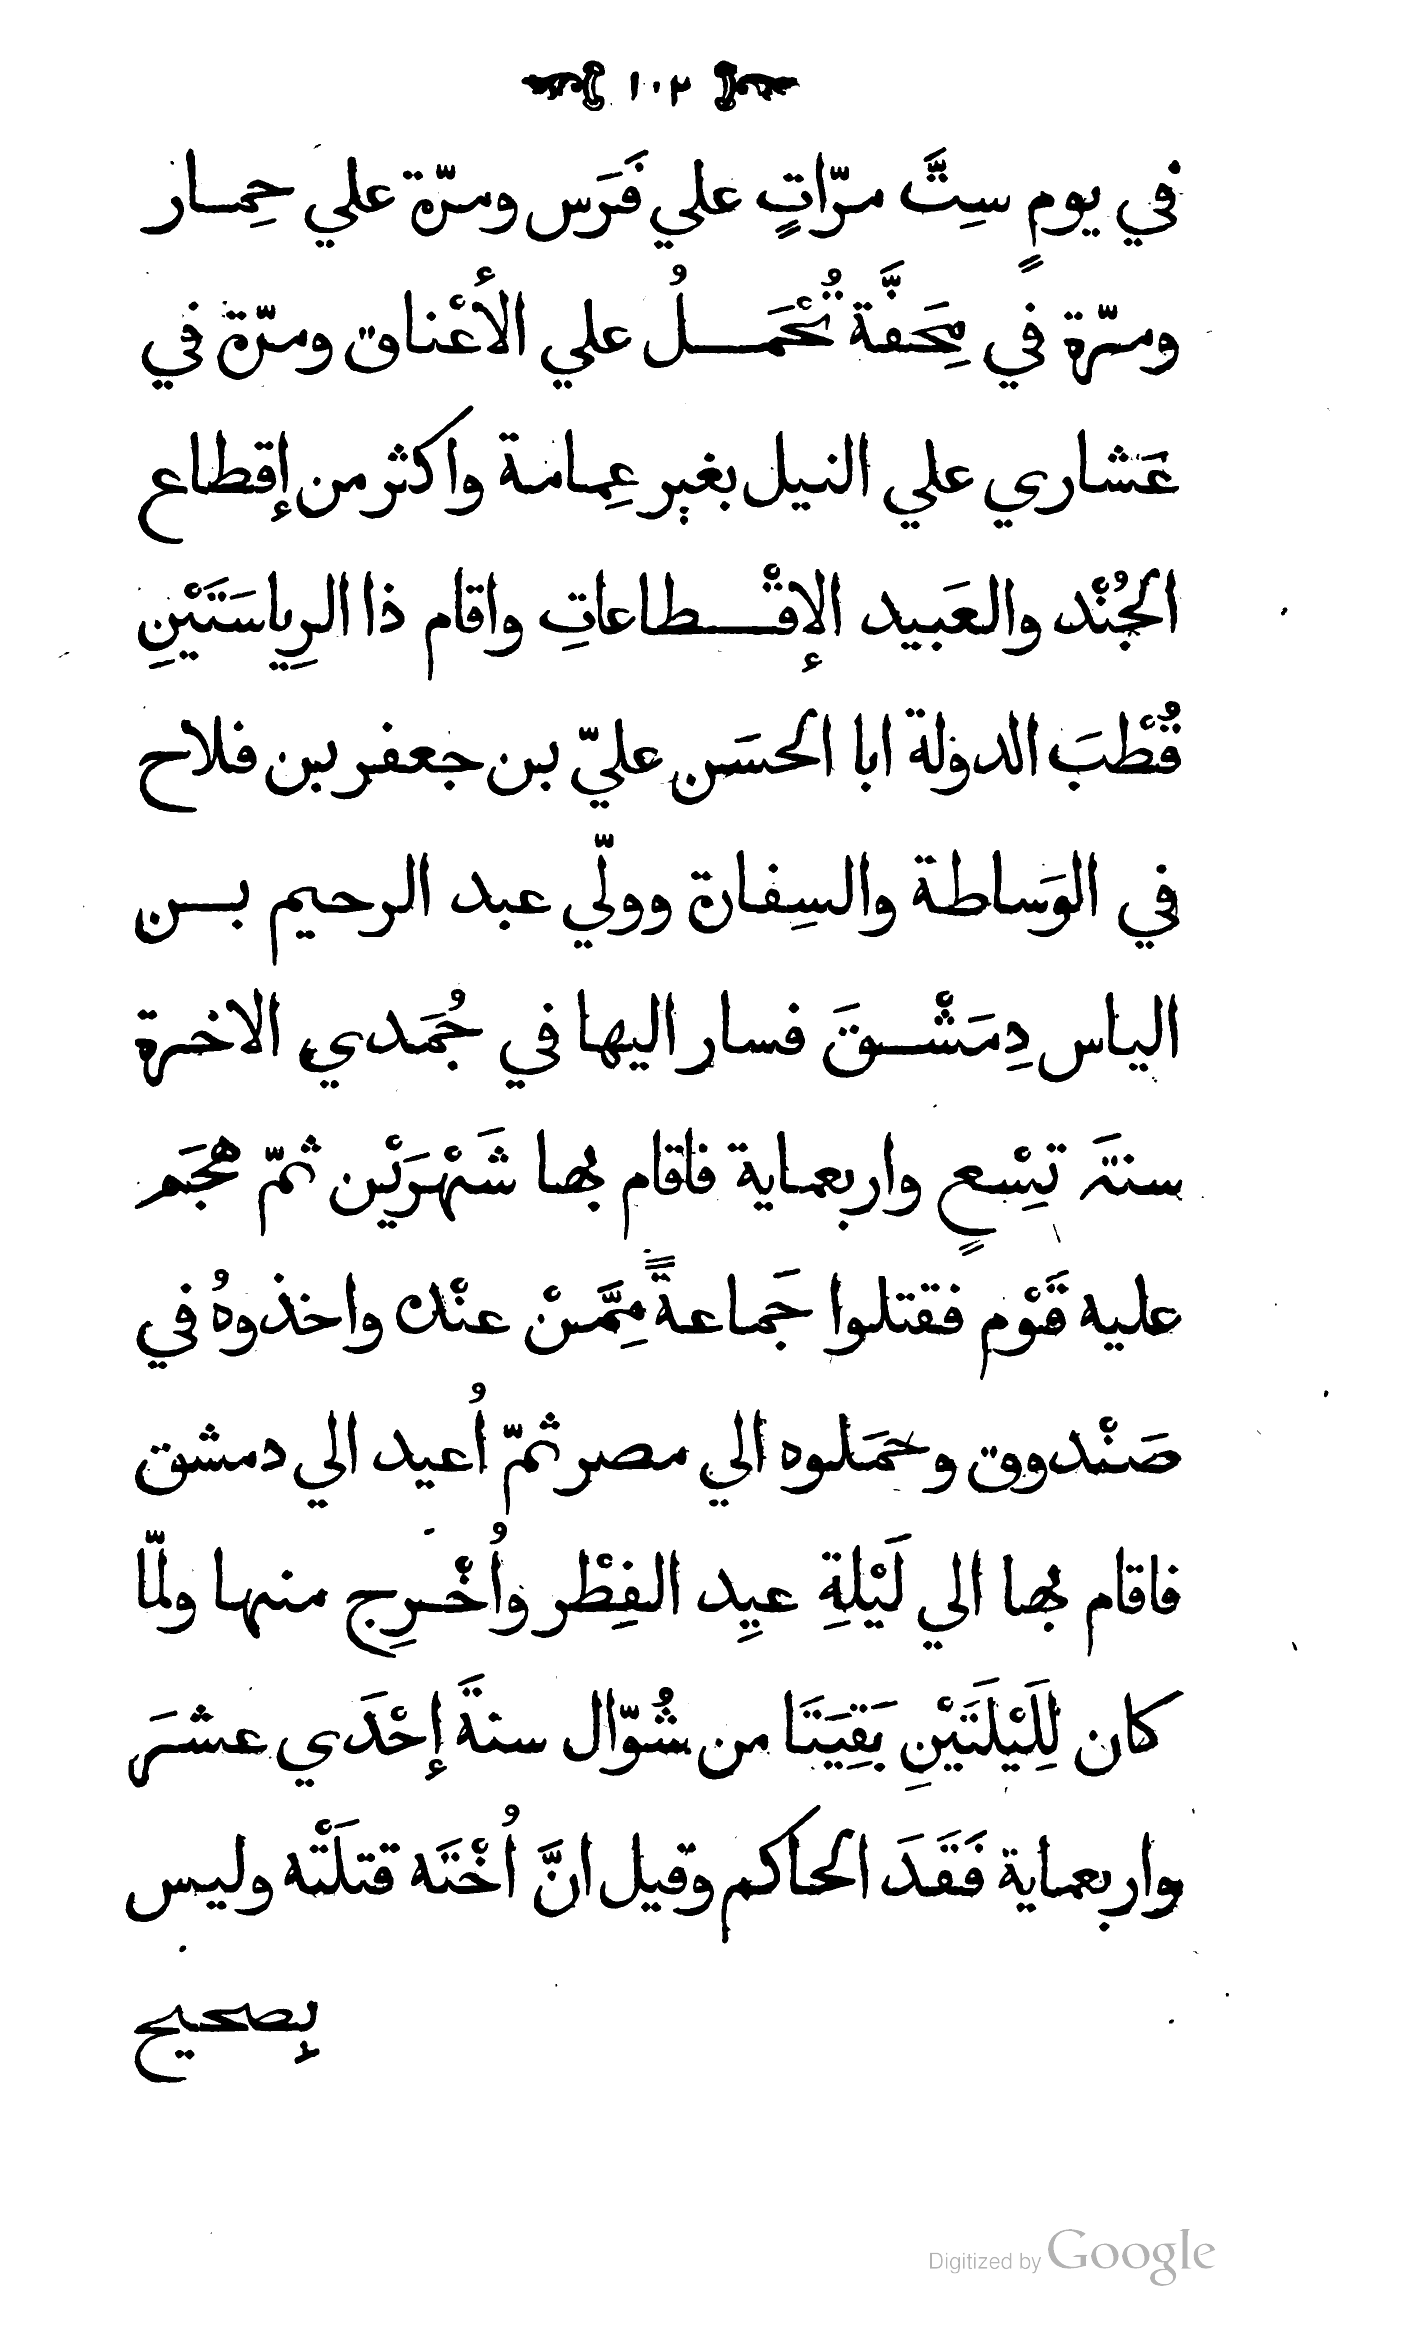 ١٠٢
في يومٍ سِتَّ مرّاتٍ علي فَرَس ومرّة علي حِمار
ومرّة في مِحَفَّة تُحْمَلُ علي الأَعْناق ومرّة في
عَشاري علي النيل بغير عِمامة واكثر من إقطاع
الجُنْد والعَبيد الإقْطاعاتِ واقام ذا الرِياسَتَيْنِ
قُطْبَ الدولة ابا الحسَن عليّ بن جعفر بن فلاح
في الوَساطة والسِفارة وولّي عبد الرحيم بن
الياس دِمَشْقَ فسار اليها في جُمَدي الاخرة
سنة تِسْعٍ واربعماية فاقام بها شَهْرَيْن ثمّ هجَم
عليه قَوْم فقتلوا جَماعةً مِمَّنْ عنْده واخذوهُ في
صَنْدوق وحَمَلوه الي مصر ثمّ أُعيد الي دمشق
فاقام بها الي لَيْلةِ عيِد الفِطْر وأُخْرِج منها ولمّا
كان لِلَيْلَتَيْنِ بَقِيَتَا من شُوّال سنةَ إحْدَي عشَر
واربعماية فَقَدَ الحاكم وقيل انَّ أُخْتَه قتلَتْه وليس
بِصحيح
Digitized by Google